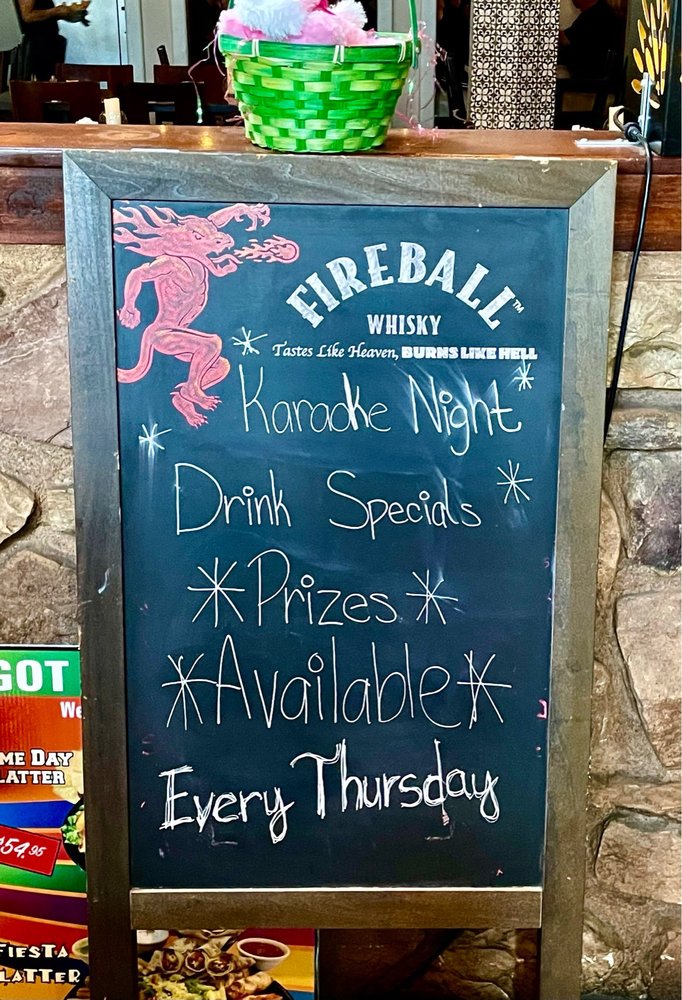 FIREBALL™
WHISKY
Tastes Like Heaven, BURNS LIKE HELL
Karaoke Night
Drink Specials
Prizes
Available
Every Thursday
GOT
We
ME DAY
LATTER
$54.95
FIESTA
LATTER